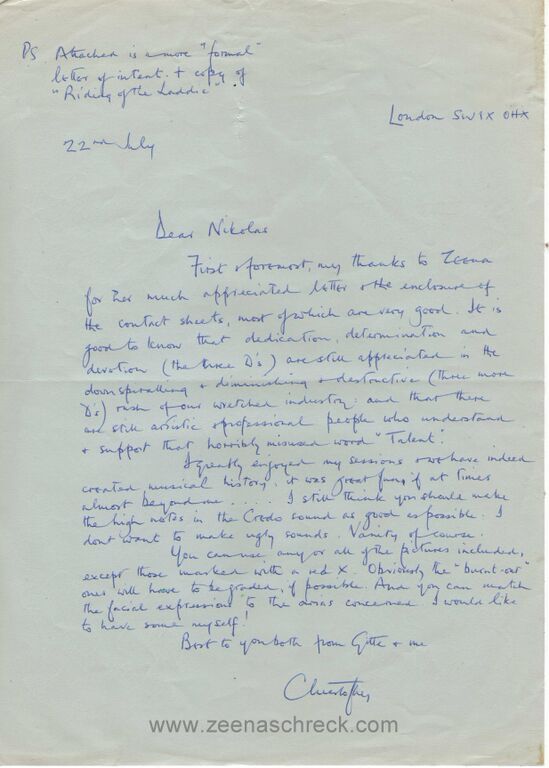 PS Attached is a more "formal"
letter of intent. + copy of
"Riding of the Laddie".
London SW1X 0HX
22nd July
Dear Nikolas
First & foremost, my thanks to Zeena
for her much appreciated letter & the enclosure of
the contact sheets, most of which are very good. It is
good to know that dedication, determination and
devotion (the three D's) are still appreciated in the
downspiralling & diminishing & destructive (three more
D's) rush of our wretched industry: and that there
are still artistic & professional people who understand
& support that horribly misused word "Talent!
I greatly enjoyed my sessions & we have indeed
created musical history. it was great fun, if at times
almost beyond me . . . I still think you should make
the high notes in the Credo sound as good as possible. I
dont want to make ugly sounds. Vanity of course.
You can use any or all of the pictures included,
except those marked with a red X. Obviously the "burnt-out"
ones will have to be graded, if possible. And you can match
the facial expression to the arias concerned. I would like
to have some myself!
Best to you both from Gitte & me
Christopher
www.zeenaschreck.com